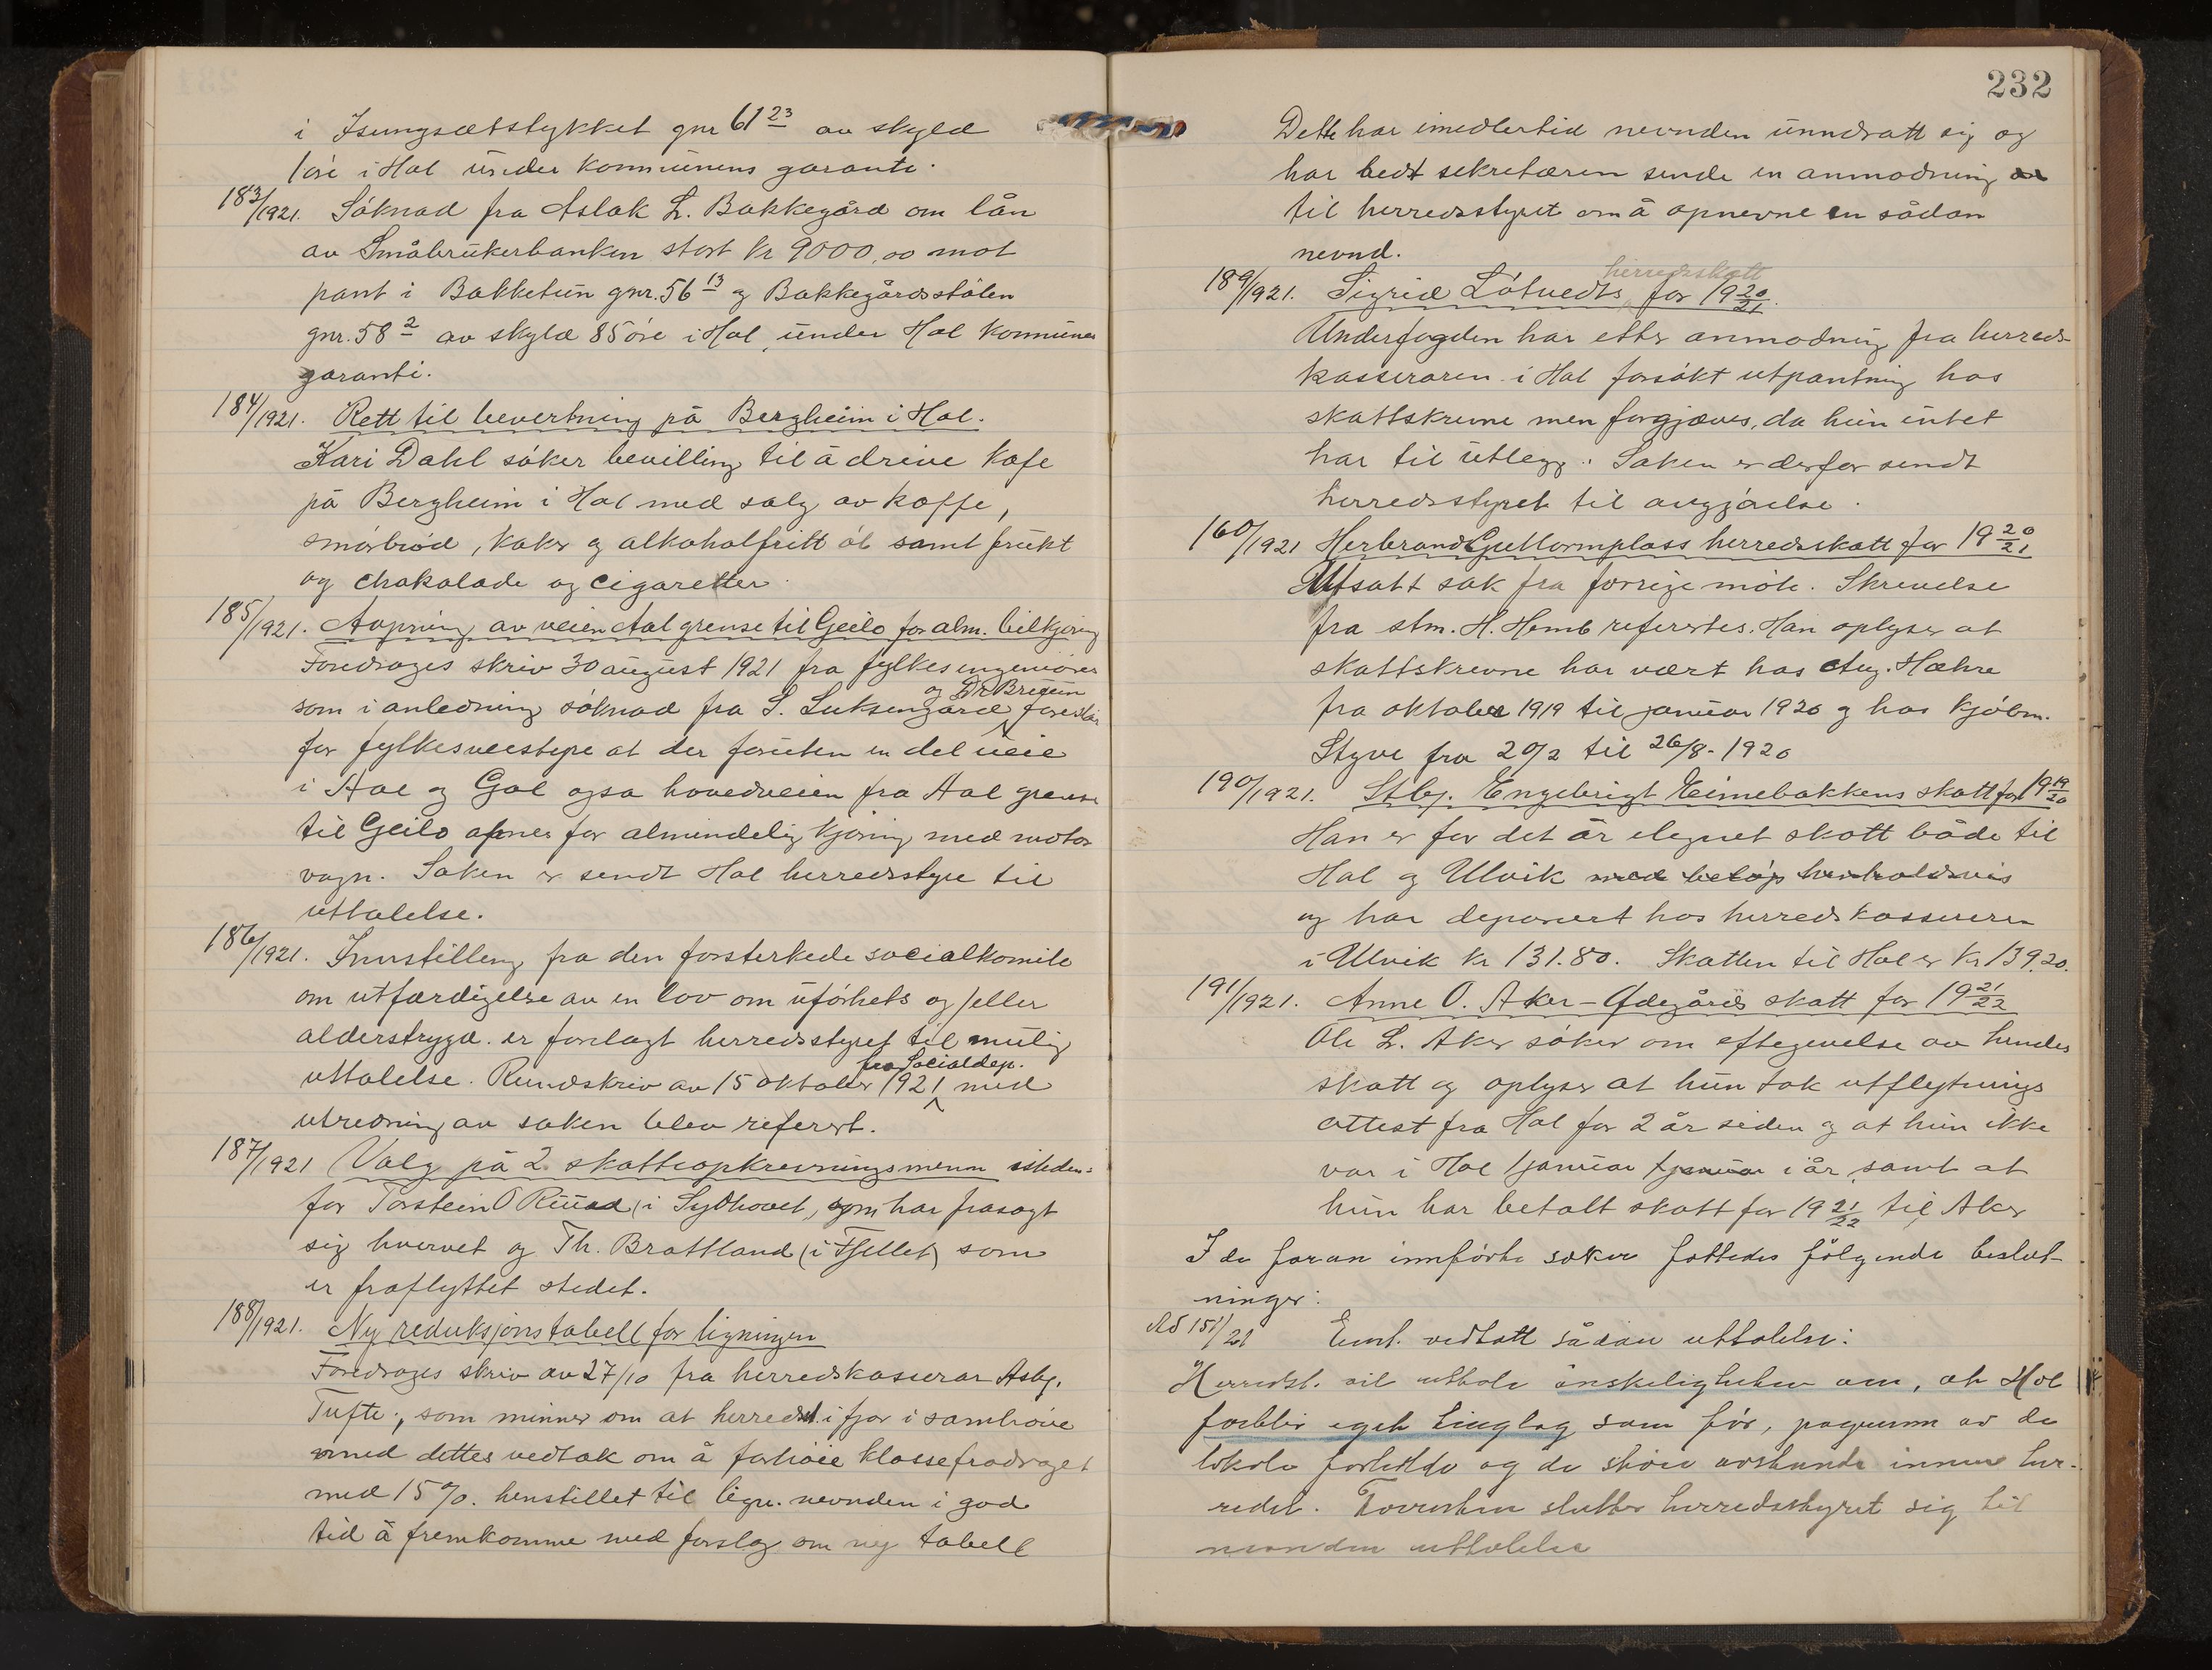 i Isungsætstykket gnr 61 23 av skyld
1 øre i Hol under kommunens garanti.
183/1921. Søknad fra Aslak L. Bakkegård om lån
av Småbrukerbanken stort kr 9000,00 mot
pant i Bakketun gnr. 56 13 og Bakkegårdsstølen
gnr. 58 2 av skyld 85 øre i Hol, under Hol kommunes
garanti.
184/1921. Rett til bevertning på Bergheim i Hol.
Kari Dahl søker bevilling til å drive kafe
på Bergheim i Hol med salg av kaffe,
smørbrød, kaker og alkoholfritt øl samt frukt
og chokolade og cigaretter.
185/1921. Aapning av veien Aal grense til Geilo for alm. bilkjøring
Foredrages skriv 30 august 1921 fra fylkesingeniøren
og Dr Breguin
som i anledning søknad fra S. Luksengård foreslår
for fylkesveistyre at der foruten en del veie
i Aal og Gol ogsa hovedveien fra Aal grense
til Geilo apnes for almindelig kjøring med motor
vogn. Saken er sendt Hol herredsstyre til
uttalelse.
186/1921. Innstilling fra den forsterkede socialkomite
om utfærdigelse av en lov om uførhets og/eller
alderstrygd. er forelagt herredsstyret til mulig
fra Socialdep.
uttalelse. Rundskriv av 15 oktober 1921 med
utredning av saken blev referert.
187/1921 Valg på 2 skatteopkrevningsmenn isteden-
for Torstein O Ruud (i Sydhovet) som har frasagt
sig hvervet og Th. Brattland (i Fjellet) som
er fraflyttet stedet.
188/1921. Ny reduksjonstabell for ligningen
Foredrages skriv av 27/10 fra herredskasserar Asbj.
Tufte, som minner om at herredst. i fjor i samhøve
med dettes vedtak om å forhøie klassefradraget
med 15 %. henstillet til lign. nevnden i god
tid å fremkomme med forslag om ny tabell
232
Dette har imedlertid nevnden unndratt sig og
har bedt sekretæren sende en anmodning
til herredsstyret om å opnevne en sådan
nevnd.
herredsskatt
189/1921. Sigrid Løtvedts for 19 20/21.
Underfogden har etter anmodning fra herreds-
kasseraren i Hol forsøkt utpantning hos
skattskrevne men forgjæves, da hun intet
har til utlegg. Saken er derfor sendt
herredsstyret til avgjørelse.
160/1921 Herbrand Guttormplass herredsskatt for 19 20/21
Utsatt sak fra forrige møte. Skrivelse
fra stm. H. Hemb referertes. Han oplyser at
skattskrevne har vært hos Aug. Hæhre
fra oktober 1919 til januar 1920 og hos kjøbm.
Styve fra 20/2 til 26/8 - 1920
190/1921. Stbj. Engebrigt Eimebakkens skatt for 19 19/20
Han er for det år ilegnet skatt både til
Hol og Ulvik med beløp henholdsvis
og har deponert hos herredskassereren
i Ulvik kr 131.80. Skatten til Hol er kr 139.20.
191/1921. Anne O. Aker-Ødegårds skatt for 19 21/22
Ole L. Aker søker om eftergivelse av hendes
skatt og oplyser at hun tok utflytnings
attest fra Hol for 2 år siden og at hun ikke
var i Hol 1 januar 1 januar i år, samt at
hun har betalt skatt for 19 21/22 til Aker
I de foran innførte saker fattedes følgende beslut-
ninger:
Ad 151/21 Enst. vedtatt sådan uttalelse:
Herredst. vil uttale ønskeligheten om, at Hol
forblir eget tinglag som før, pågrunn av de
lokale forholde og de store avstande innen her-
redet. Forresten slutter herredsstyret sig til
nevnden uttalelse